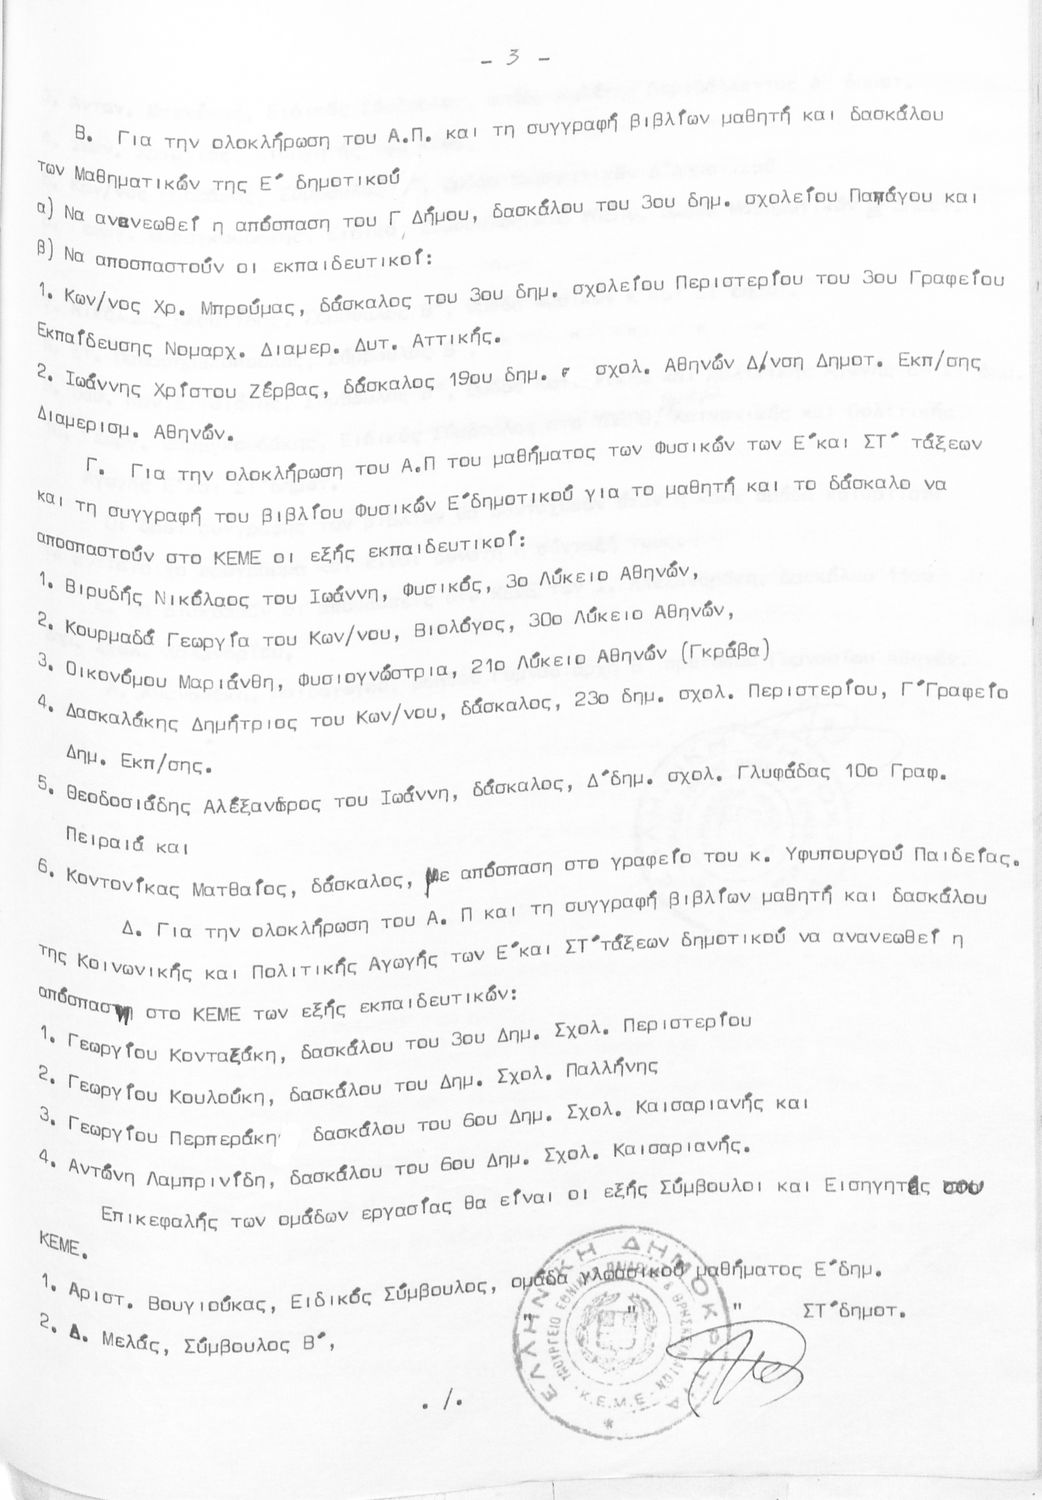 - 3 -
Β. Για την ολοκλήρωση του Α.Π. και τη συγγραφή βιβλίων μαθητή και δασκάλου
των Μαθηματικών της Ε΄ δημοτικού
α) Να ανανεωθεί η απόσπαση του Γ Δήμου, δασκάλου του 3ου δημ. σχολείου Παπάγου και
β) Να αποσπαστούν οι εκπαιδευτικοί:
1. Κων/νος Χρ. Μπρούμας, δάσκαλος του 3ου δημ. σχολείου Περιστερίου του 3ου Γραφείου
Εκπαίδευσης Νομαρχ. Διαμερ. Δυτ. Αττικής.
2. Ιωάννης Χρίστου Ζέρβας, δάσκαλος 19ου δημ. σχολ. Αθηνών Δ/νση Δημοτ. Εκπ/σης
Διαμερισμ. Αθηνών.
Γ. Για την ολοκλήρωση του Α.Π του μαθήματος των Φυσικών των Ε΄και ΣΤ΄ τάξεων
και τη συγγραφή του βιβλίου Φυσικών Ε΄δημοτικού για το μαθητή και το δάσκαλο να
αποσπαστούν στο ΚΕΜΕ οι εξής εκπαιδευτικοί:
1. Βιρυδής Νικόλαος του Ιωάννη, Φυσικός, 3ο Λύκειο Αθηνών,
2. Κουρμαδά Γεωργία του Κων/νου, Βιολόγος, 30ο Λύκειο Αθηνών,
3. Οικονόμου Μαριάνθη, Φυσιογνώστρια, 21ο Λύκειο Αθηνών (Γκράβα)
4. Δασκαλάκης Δημήτριος του Κων/νου, δάσκαλος, 23ο δημ. σχολ. Περιστερίου, Γ΄Γραφείο
Δημ. Εκπ/σης.
5. Θεοδοσιάδης Αλέξανδρος του Ιωάννη, δάσκαλος, Δ΄δημ. σχολ. Γλυφάδας 10ο Γραφ.
Πειραιά και
6. Κοντονίκας Ματθαίος, δάσκαλος, με απόσπαση στο γραφείο του κ. Υφυπουργού Παιδείας.
Δ. Για την ολοκλήρωση του Α. Π και τη συγγραφή βιβλίων μαθητή και δασκάλου
της Κοινωνικής και Πολιτικής Αγωγής των Ε΄και ΣΤ΄τάξεων δημοτικού να ανανεωθεί η
απόσπαση στο ΚΕΜΕ των εξής εκπαιδευτικών:
1. Γεωργίου Κονταξάκη, δασκάλου του 3ου Δημ. Σχολ. Περιστερίου
2. Γεωργίου Κουλούκη, δασκάλου του Δημ. Σχολ. Παλλήνης
3. Γεωργίου Περπεράκη δασκάλου του 6ου Δημ. Σχολ. Καισαριανής και
4. Αντώνη Λαμπρινίδη, δασκάλου του 6ου Δημ. Σχολ. Καισαριανής.
Επικεφαλής των ομάδων εργασίας θα είναι οι εξής Σύμβουλοι και Εισηγητές του
ΚΕΜΕ.
1. Αριστ. Βουγιούκας, Ειδικός Σύμβουλος, ομάδα γλωσσικού μαθήματος Ε΄δημ.
2. Δ. Μελάς, Σύμβουλος Β΄, " " " ΣΤ΄δημοτ.
ΕΛΛΗΝΙΚΗ ΔΗΜΟΚΡΑΤΙΑ
ΥΠΟΥΡΓΕΙΟ ΕΘΝΙΚΗΣ ΠΑΙΔΕΙΑΣ & ΘΡΗΣΚΕΥΜΑΤΩΝ
Κ.Ε.Μ.Ε
. /.